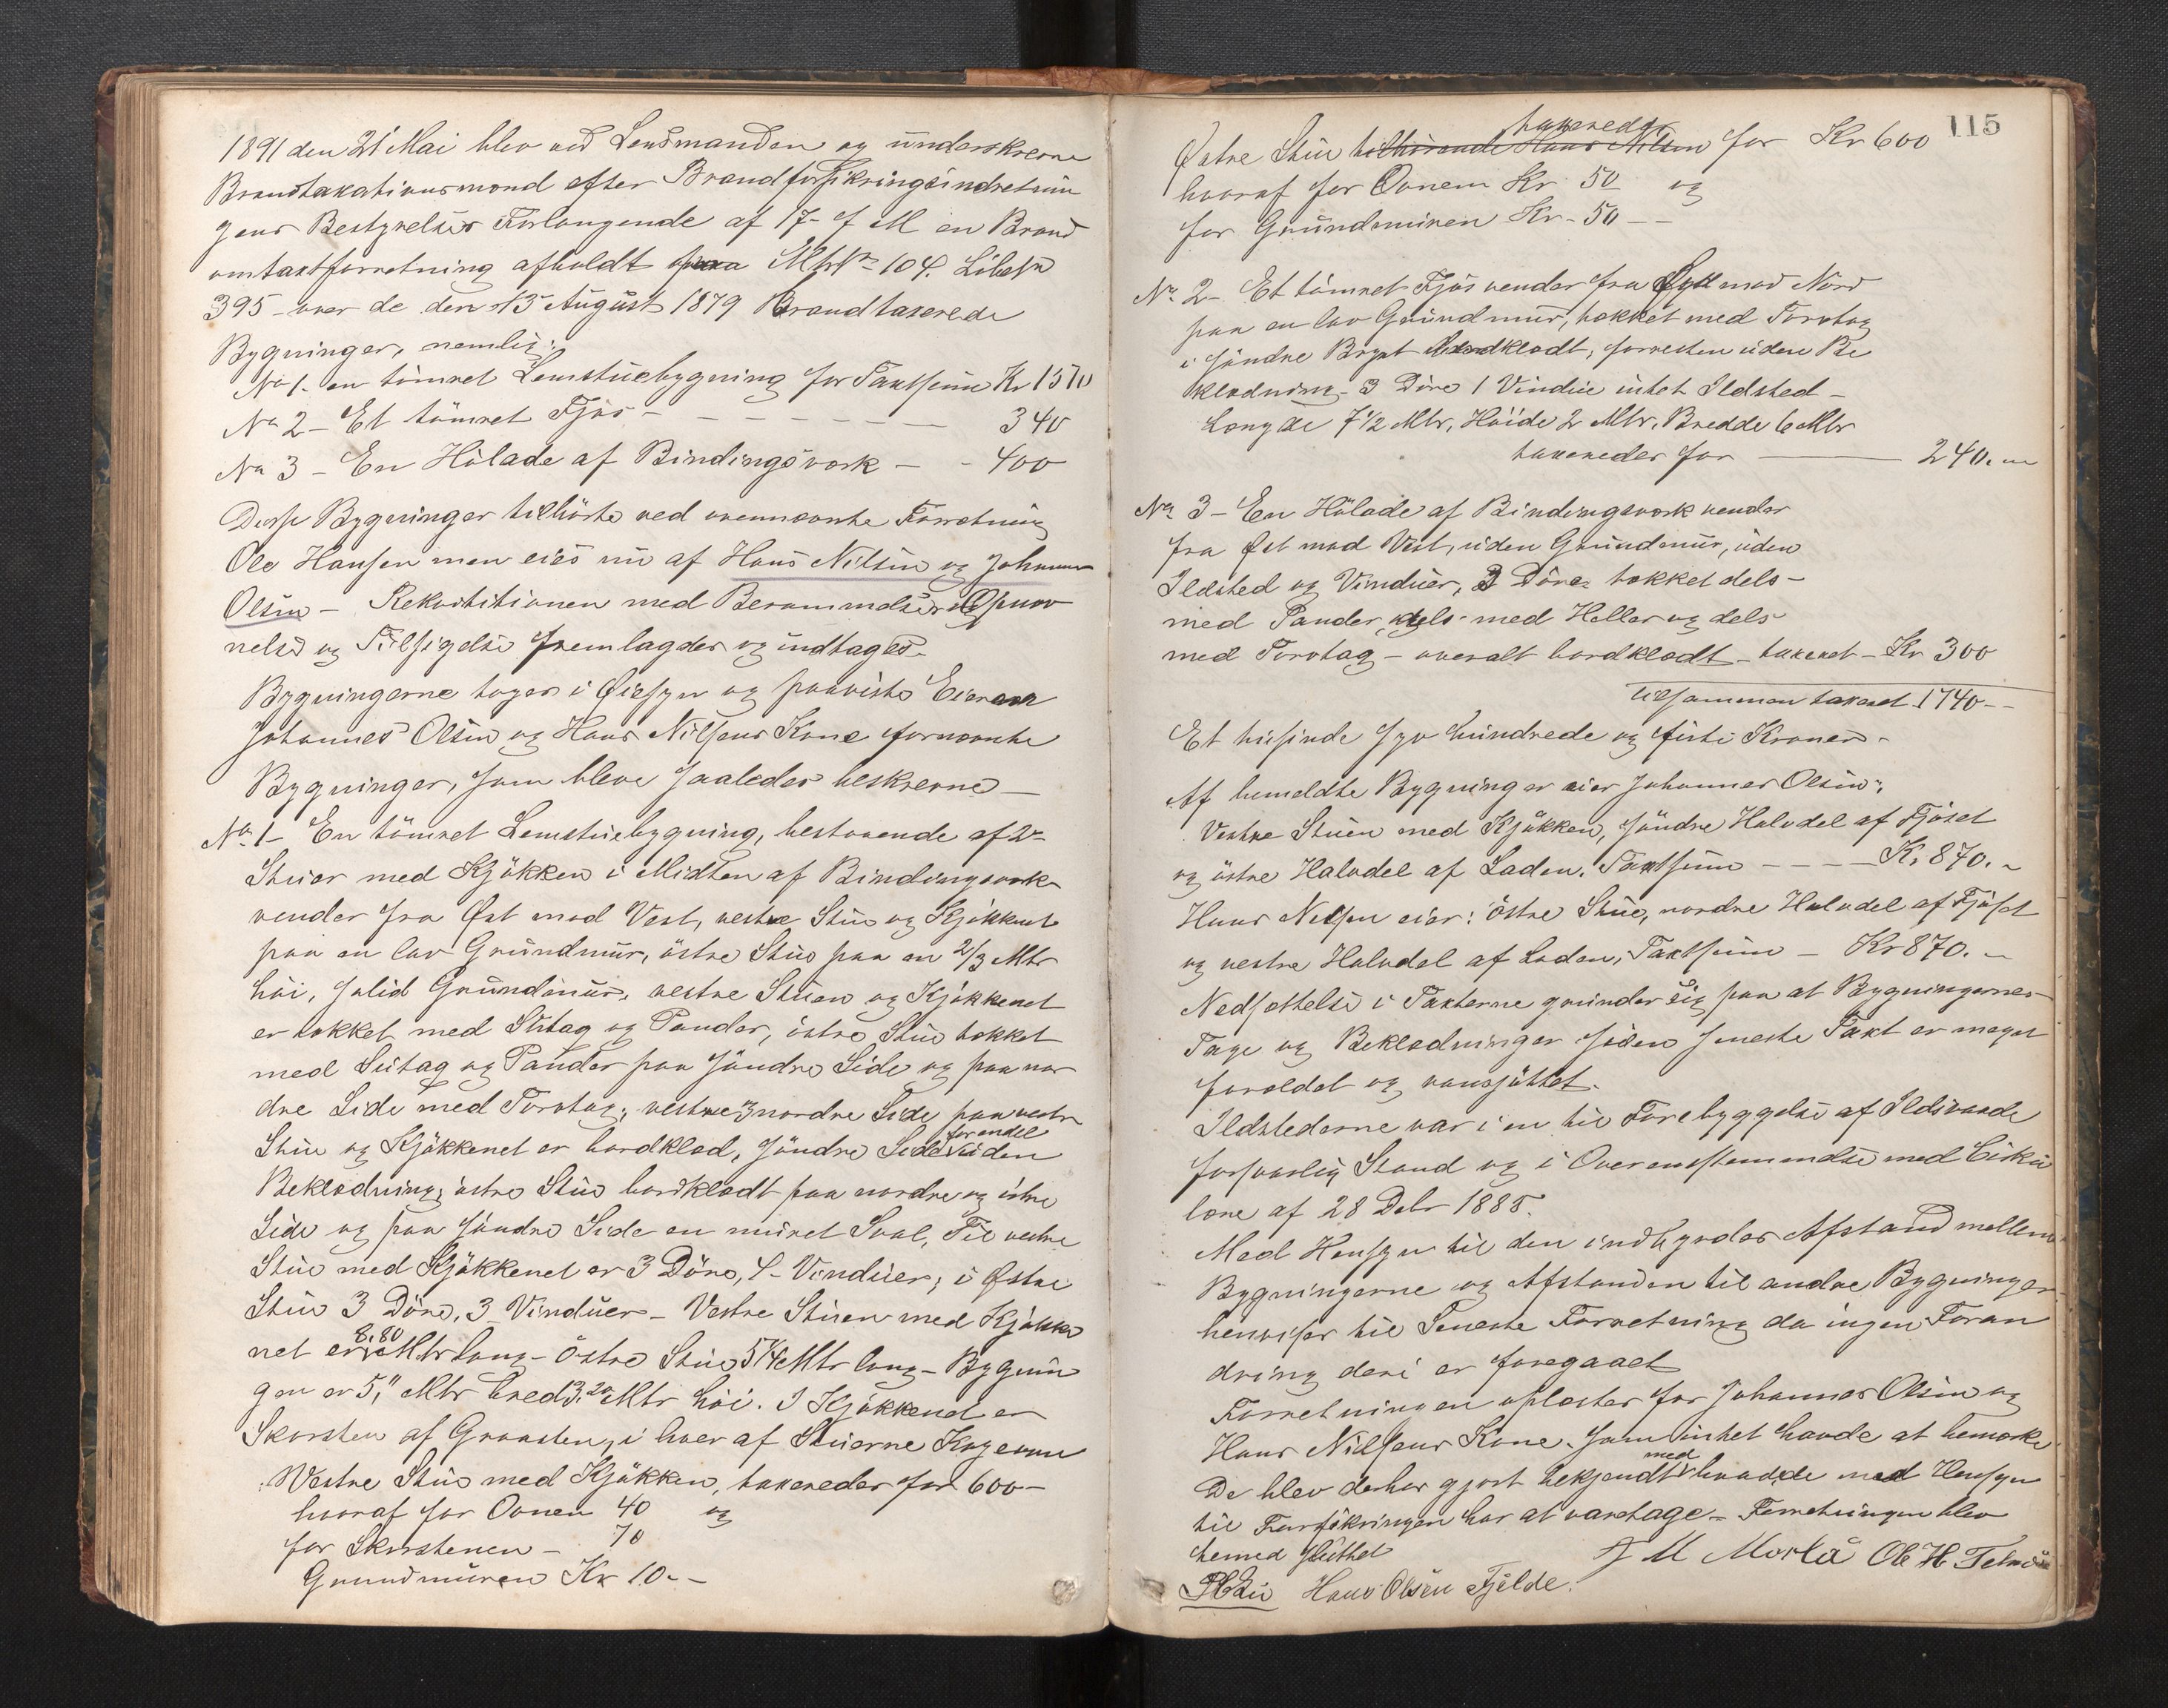 1891 den 21 Mai blev ved Lensmanden og underskrevne
Brandtaxationsmænd efter Brandforsikringsindretnin
gens Bestyrelses Forlangende af 17 f M en Brand
omtaxtforretning afholdt paa MtrNr 104. LøbeNr
395 over de den 13 August 1879 Brandtaxerede
Bygninger, nemlig:
No 1. en tømret Lemstuebygning for Taxtsum Kr 1570
No 2 - Et tømret Fjøs - - - - - - 340
No 3 - En Hølade af Bindingsværk - - 400
Disse Bygninger tilhørte ved ovennævnte Forretning
Ole Hansen men eies nu af Hans Nilsen og Johannes
Olsen - Rekvisitionen med Berammelse Opnæv
nelse og Tilsigelse fremlagdes og indtages.
Bygningerne toges i Øiesyn og paaviste Eieren
Johannes Olsen og Hans Nilsens Kone fornævnte
Bygninger, som bleve saaledes beskrevne -
No 1 - En tømret Lemstuebygning, bestaaende af 2
Stuer med Kjøkken i Midten af Bindingsværk
vender fra Øst mod Vest, vestre Stue og Kjøkkenet
paa en lav Grundmur, østre Stue paa en 2/3 Mtr
høi, solid Grundmur, vestre Stuen og Kjøkkenet
er tækket med Sutag og Pander, østre Stue tækket
med Sutag og Pander paa søndre Side og paa nor
dre Side med Torvtag; vestre og nordre Side paa vestre
Stue og Kjøkkenet er bordklæd, søndre Side forendel uden
Beklædning, østre Stue bordklædt paa nordre og østre
Side og paa søndre Side en muret Sval, Til vestre
Stue med Kjøkkenet er 3 Døre, 4 Vinduer; i Østre
Stue 3 Døre, 3 Vinduer - Vestre Stuen med Kjøkke
net er 8,80 Mtr lang - Østre Stue 5 1/4 Mtr lang - Bygnin
gen er 5," Mtr bred 3,20 Mtr høi. I Kjøkkenet er
Skorsten af Graasten, i hver af Stuerne Kogeovn
Vestre Stue med Kjøkken, taxeredes for 600 -
hvoraf for Ovnen 40 og
for Skorstenen - 70
Grundmuren Kr 10. -
115
Østre Stue tilhørende Hans Nilsen taxeredes for Kr 600
hvoraf for Ovnen Kr 50 og
for Grundmuren Kr - 50 -
No 2 - Et tømret Fjøs vender fra Syd mod Nord
paa en lav Grundmur, tækket med Torvtag
i søndre Bryst bordklædt, forresten uden Be
klædning - 3 Døre 1 Vindue intet Ildsted -
Længde 7 1/2 Mtr, Høide 2 Mtr, Bredde 6 Mtr
taxeredes for - 240. -
No 3 - En Hølade af Bindingsværk vender
fra Øst mod Vest, uden Grundmur, uden
Ildsted og Vinduer, 3 Døre tækket dels -
med Pander, dels med Heller og dels
med Torvtag - overalt bordklædt - taxeret - Kr 300
tilsammen taxeret 1740 -
Et tusinde syv hundrede og firti Kroner -
Af bemeldte Bygninger eier Johannes Olsen:
Vestre Stuen med Kjøkken, søndre Halvdel af Fjøset
og østre Halvdel af Laden. Taxtsum - - - Kr 870. -
Hans Nilsen eier: østre Stue, nordre Halvdel af Fjøset
og vestre Halvdel af Laden, Taxtsum - Kr 870. -
Nedsættelse i Taxterne grunder sig paa at Bygningernes
Tage og Beklædninger siden seneste Taxt er meget
forældet og vansjøttet.
Ildstederne var i en til Forebyggelse af Ildsvaade
forsvarlig Stand og i Overensstemmelse med Cirku
lære af 28 Debr 1888.
Med Hensyn til den indbyrdes Afstand mellem
Bygningerne og Afstanden til andre Bygninger
henvises til Seneste Forretning da ingen Foran
dring deri er foregaaet
Forretningen oplæstes for Johannes Olsen og
Hans Nilsens Kone som intet havde at bemærke
De blev derhos gjort bekjendt med hvad de med Hensyn
til Forsikringen har at varetage - Forretningen blev
hermed sluttet
J M Hans Olsen Fjelde. Ole H